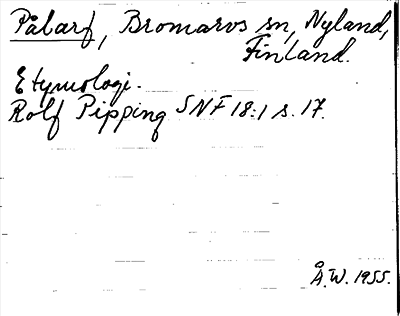 Pålarf, Bromarvs sn, Nyland,
Finland.
Etymologi.
Rolf Pipping SNF 18:1 s. 17.
Å.W. 1955.